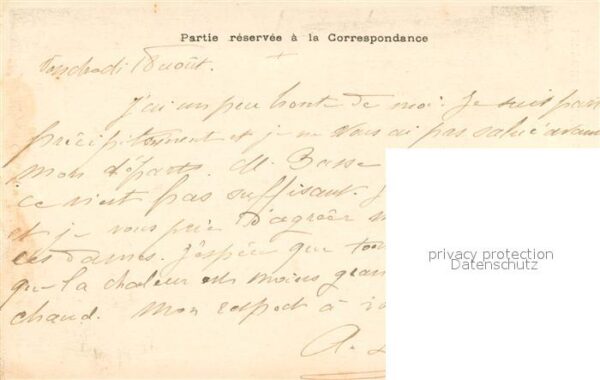 Partie réservée à la Correspondance
Vendredi 18 août.
J'ai un peu honte de moi. Je suis parti
précipitamment et je ne vous ai pas salué avant
mon départ. M. Basse
ce n'est pas suffisant. J
et je vous prie d'agréer m
ces dames. J'espère que tou
que la chaleur est moins gran
chaud. Mon respect à
A.
privacy protection
Datenschutz